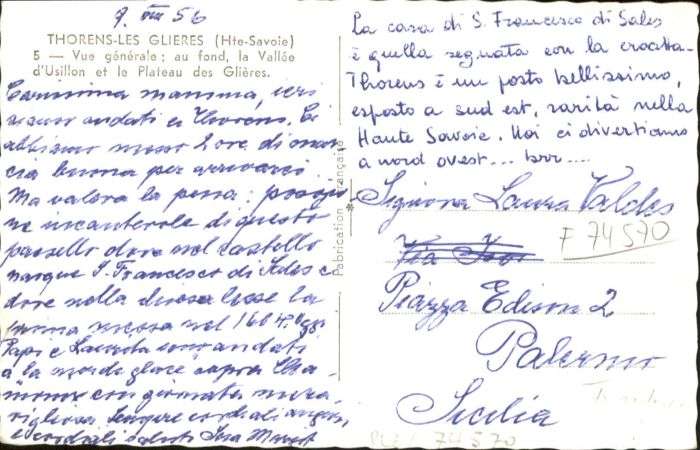 7. VIII 56
THORENS-LES GLIERES (Hte-Savoie)
5 — Vue générale; au fond, la Vallée
d'Usillon et le Plateau des Glières.
Carissima mamma, ieri
siamo andati a Thorens. Ci
abbiamo messo 2 ore di mar
cia buona per arrivarci.
Ma valeva la pena: posizio
ne incantevole di questo
paesello dove nel castello
nacque S. Francesco di Sales e
dove nella chiesa lesse la
prima messa nel 160 Oggi
Papi e sono andati
a la sopra Cha
monix con giornata mera
vigliosa. Sempre cordiali auguri
e cordiali saluti
La casa di S. Francesco di Sales
è quella segnata con la crocetta.
Thorens è un posto bellissimo,
esposto a sud est, rarità nella
Haute Savoie. Noi ci divertiamo
a nord ovest... brr....
Fabrication Française
Signora Laura Valdes
F 74570
Via
Piazza Edison 2
Palermo
Sicilia
74570